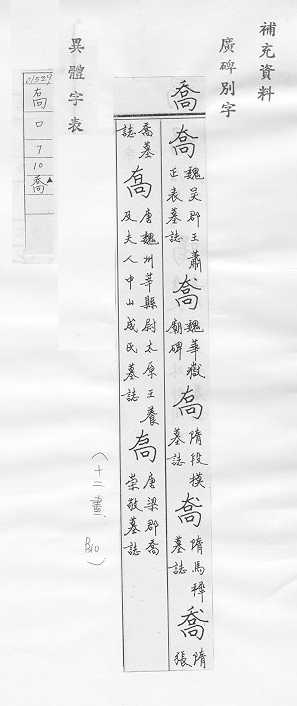 補充資料
廣碑別字
喬
喬 魏吳郡王蕭正表墓誌
喬 魏華嶽廟碑
隋段模墓誌
隋馬穉墓誌
喬 隋張喬墓誌
唐魏州莘縣尉太原王養及夫人中山成氏墓誌
唐梁郡喬榮敬墓誌
(十二畫 B10)
異體字表
01529
口
7
10
喬▲